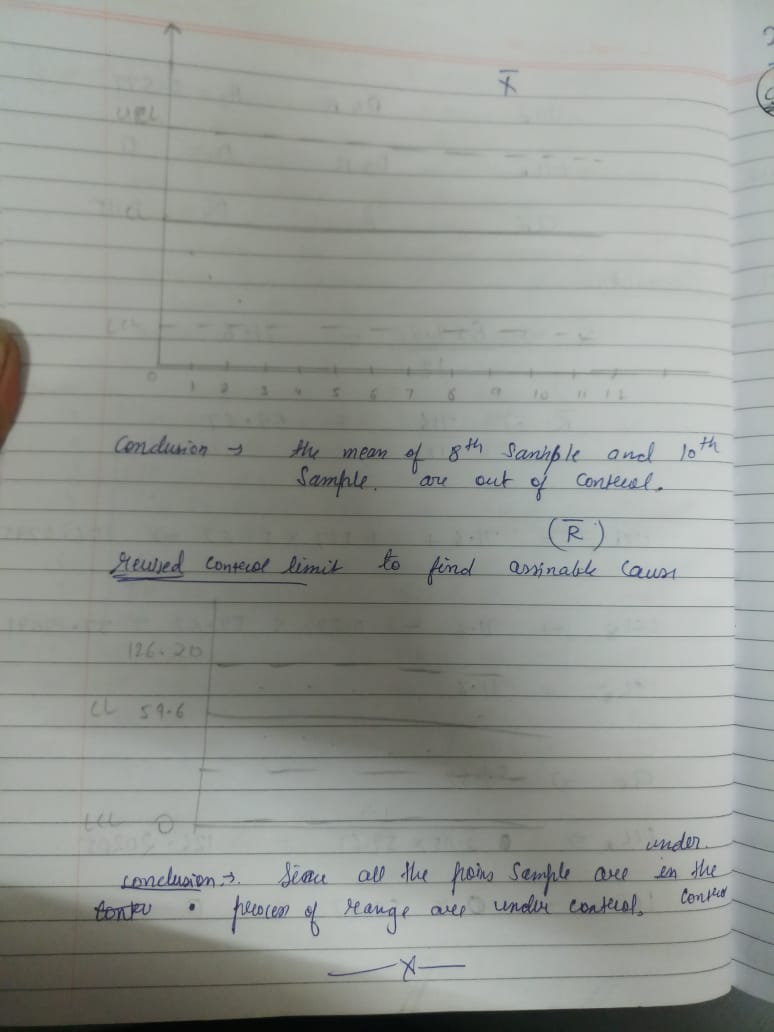 X̄
UCL
CL
LCL
0 1 2 3 4 5 6 7 8 9 10 11 12
Conclusion → the mean of 8th Sample and 10th
Sample. are out of Control.
(R̄)
revised control limit to find assinable Cause
126.20
CL 59.6
LCL 0
under.
Conclusion →. Since all the poins Sample are in the
contro • process of range are under control. Control
—x—